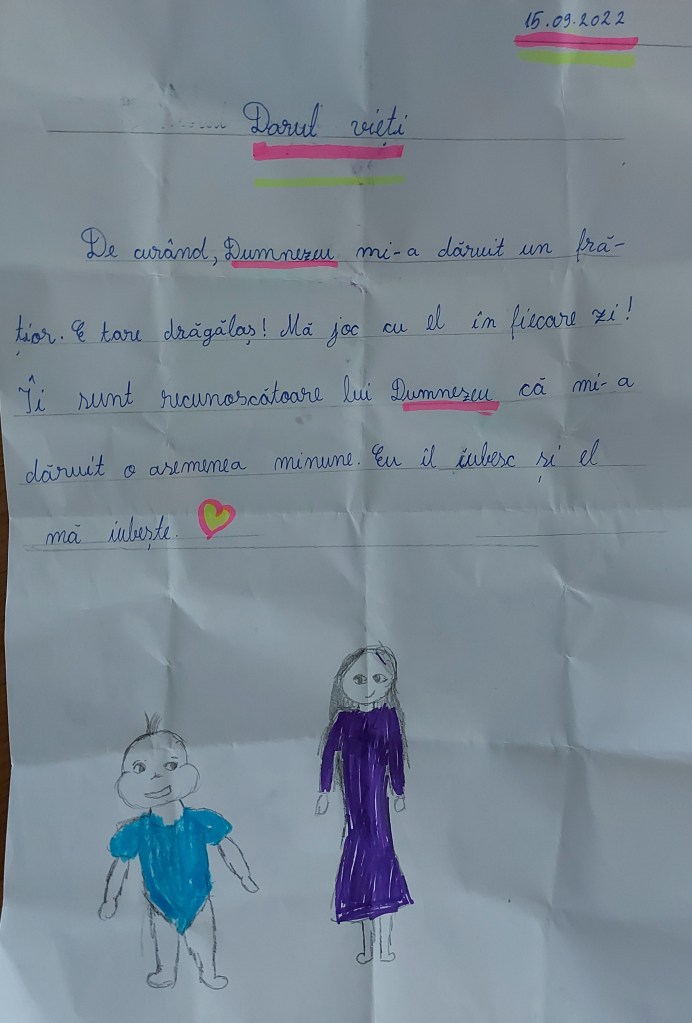 15.09.2022
Darul vieți
De curând, Dumnezeu mi-a dăruit un fră-
țior. E tare drăgălaș! Mă joc cu el în fiecare zi!
Îi sunt recunoscătoare lui Dumnezeu că mi-a
dăruit o asemenea minune. Eu îl iubesc și el
mă iubește.